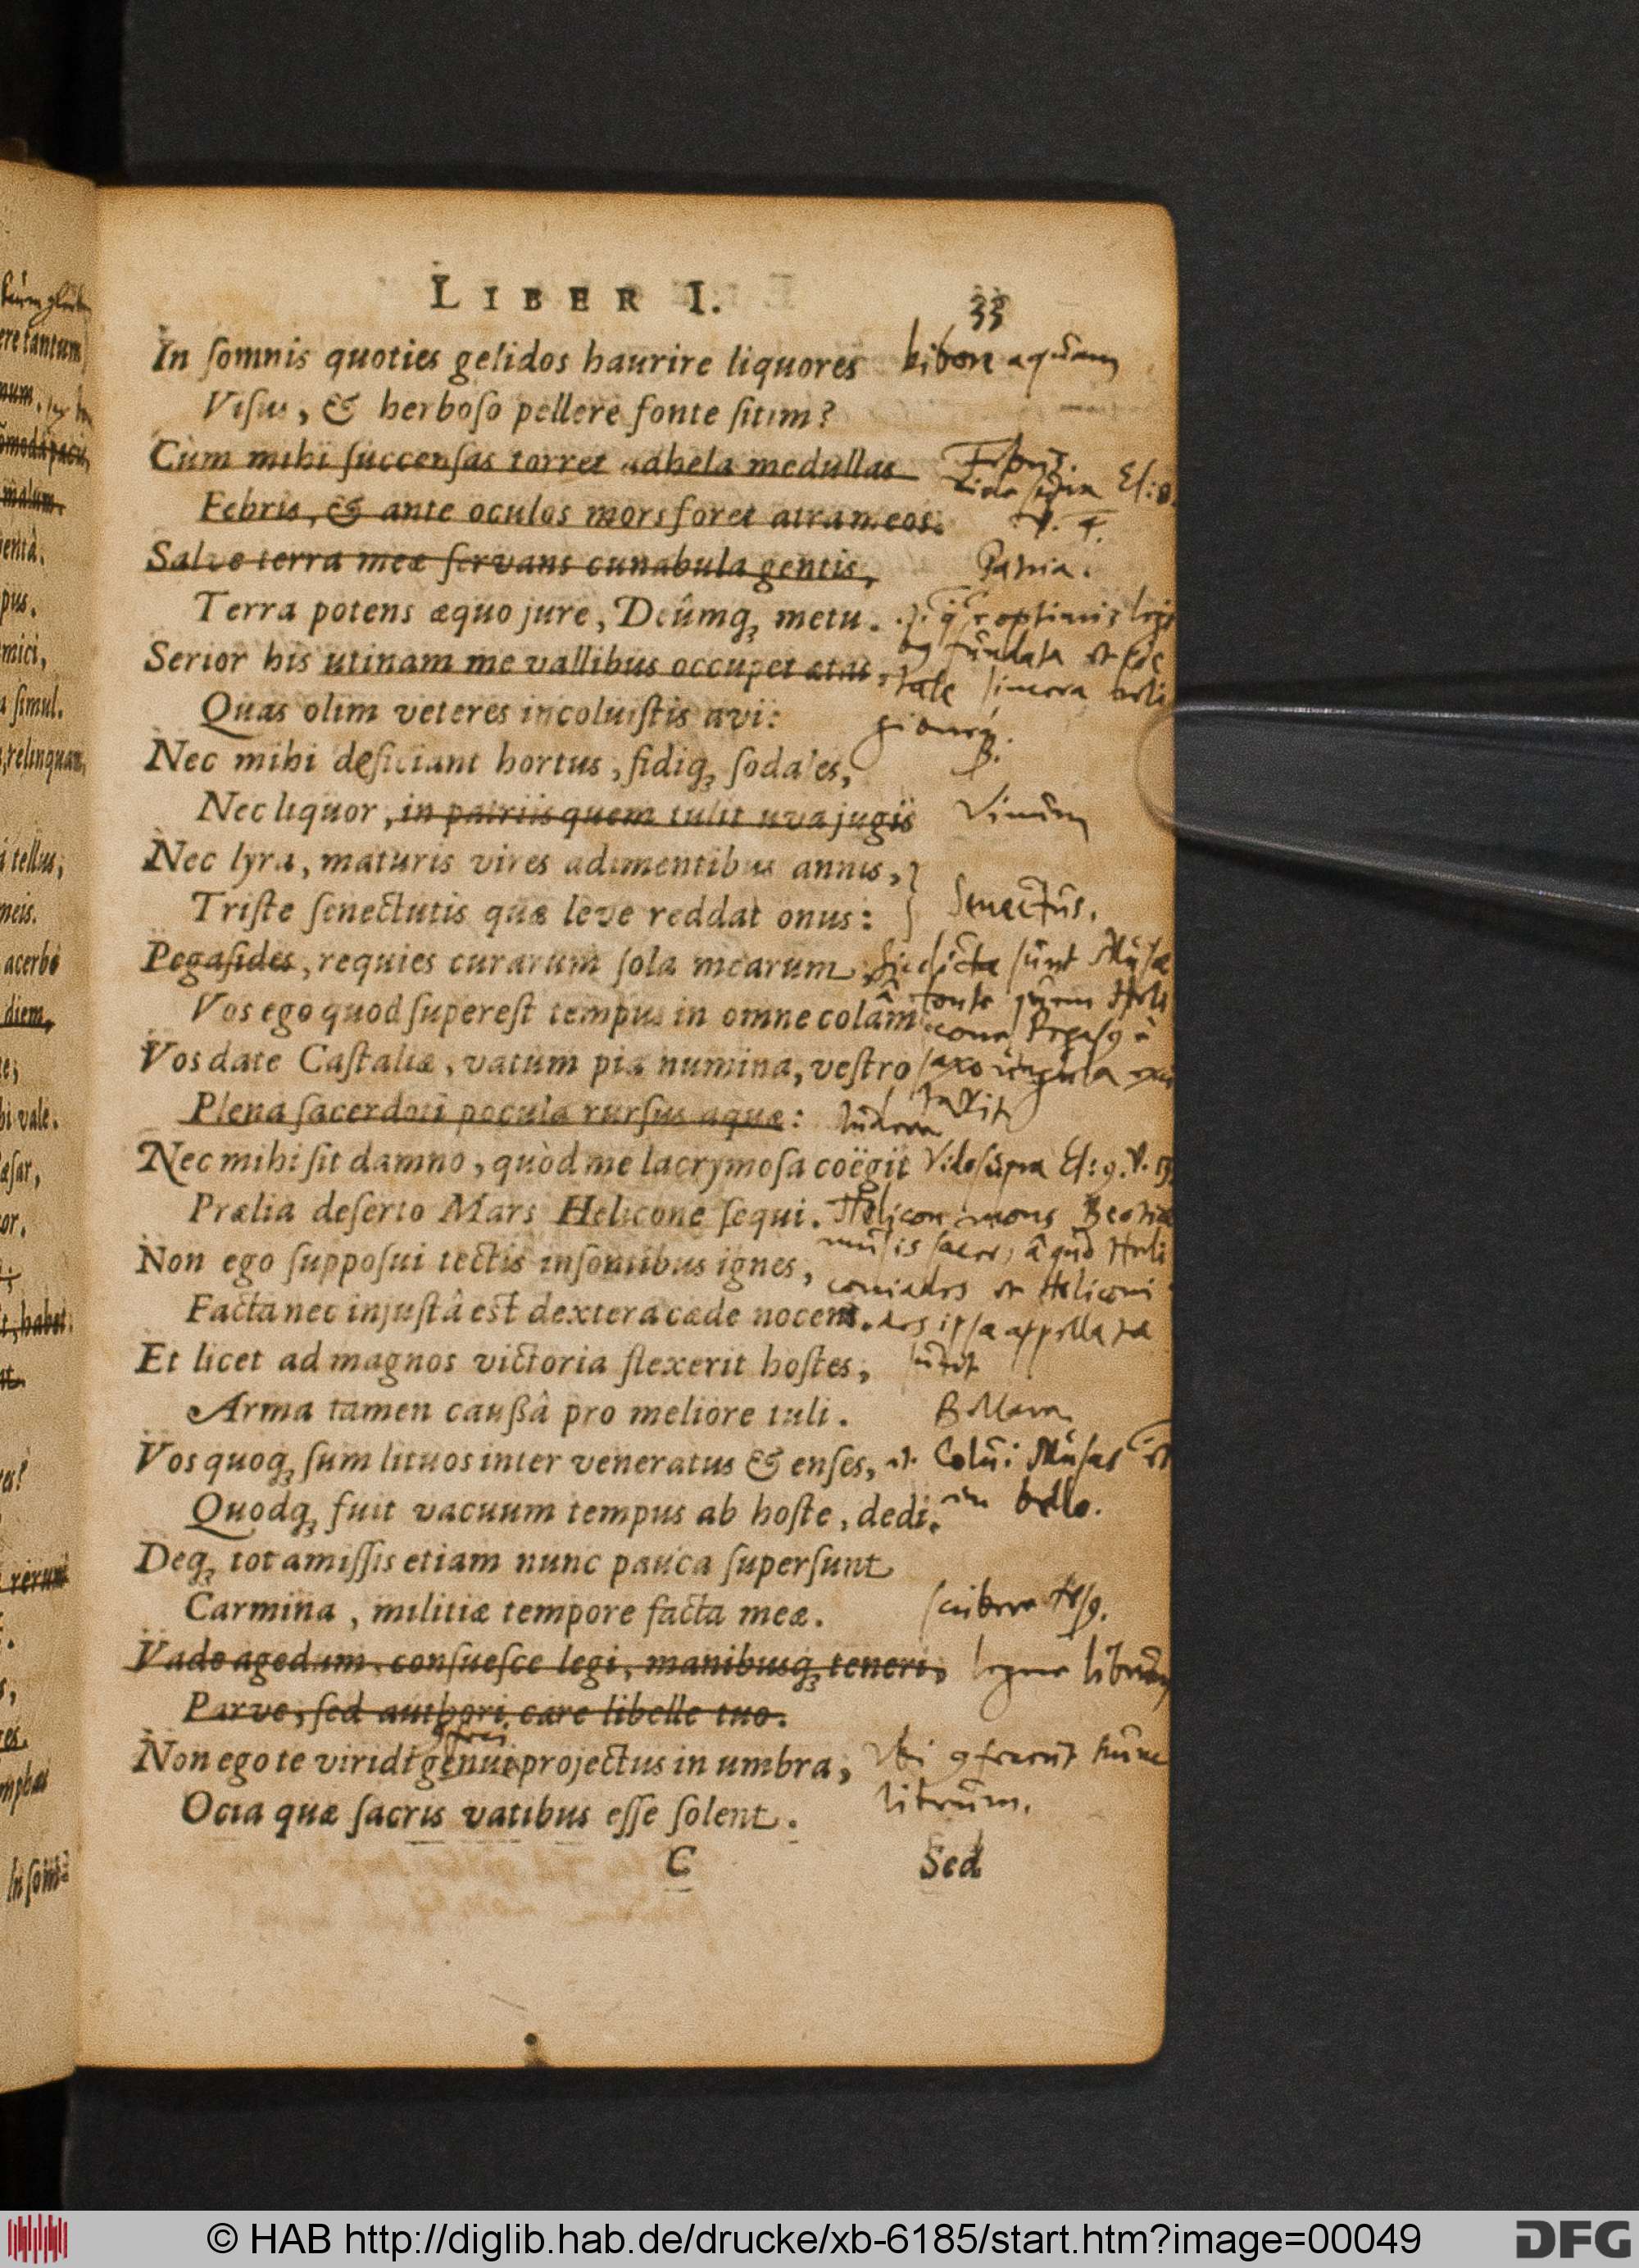 LIBER I. 33
In ſomnis quoties gelidos haurire liquores
bibere aquam
Viſus, & herboſo pellere fonte ſitim?
Cùm mihi ſuccenſas torret adhela medullas
Febris.
Febris, & ante oculos mors foret atra meos.
Salve terra meæ ſervans cunabula gentis,
Patria.
Terra potens æquo jure, Deûmq; metu.
Serior his utinam me vallibus occupet ætas,
Quas olim veteres incoluiſtis avi:
Nec mihi deficiant hortus, fidiq; ſodales,
Nec liquor, in patriis quem tulit uva jugis
Vinum
Nec lyra, maturis vires adimentibus annis,
Triſte ſenectutis quæ leve reddat onus:
Senectus.
Pegaſides, requies curarum ſola mearum,
Sic dictæ sunt Musæ
Vos ego quod ſupereſt tempus in omne colam
â fonte quem Heli
Vos date Caſtaliæ, vatum pia numina, veſtro
Plena ſacerdoti pocula rurſus aquæ:
Nec mihi ſit damno, quòd me lacrymoſa coëgit
Vide supra El: 9. V.
Prælia deſerto Mars Helicone ſequi.
Helicon mons Beotiæ
musis sacer, â quo Heli
Non ego ſuppoſui tectis inſontibus ignes,
coniades et Heliconi
Facta nec injuſtâ eſt dextera cæde nocens.
des ipsæ appellatæ
Et licet ad magnos victoria flexerit hoſtes,
sunt
Arma tamen cauſſâ pro meliore tuli.
Bellare
Vos quoq; ſum lituos inter veneratus & enſes,
Colui Musas
Quodq; fuit vacuum tempus ab hoſte, dedi.
in bello.
Deq; tot amiſſis etiam nunc pauca ſuperſunt
Carmina, militiæ tempore facta meæ.
Vade agedum, conſueſce legi, manibusq; teneri,
legere librum
Parve, ſed authori care libelle tuo.
Non ego te viridi genui projectus in umbra,
Ocia quæ ſacris vatibus eſſe ſolent.
librum.
C Sed
© HAB http://diglib.hab.de/drucke/xb-6185/start.htm?image=00049
DFG